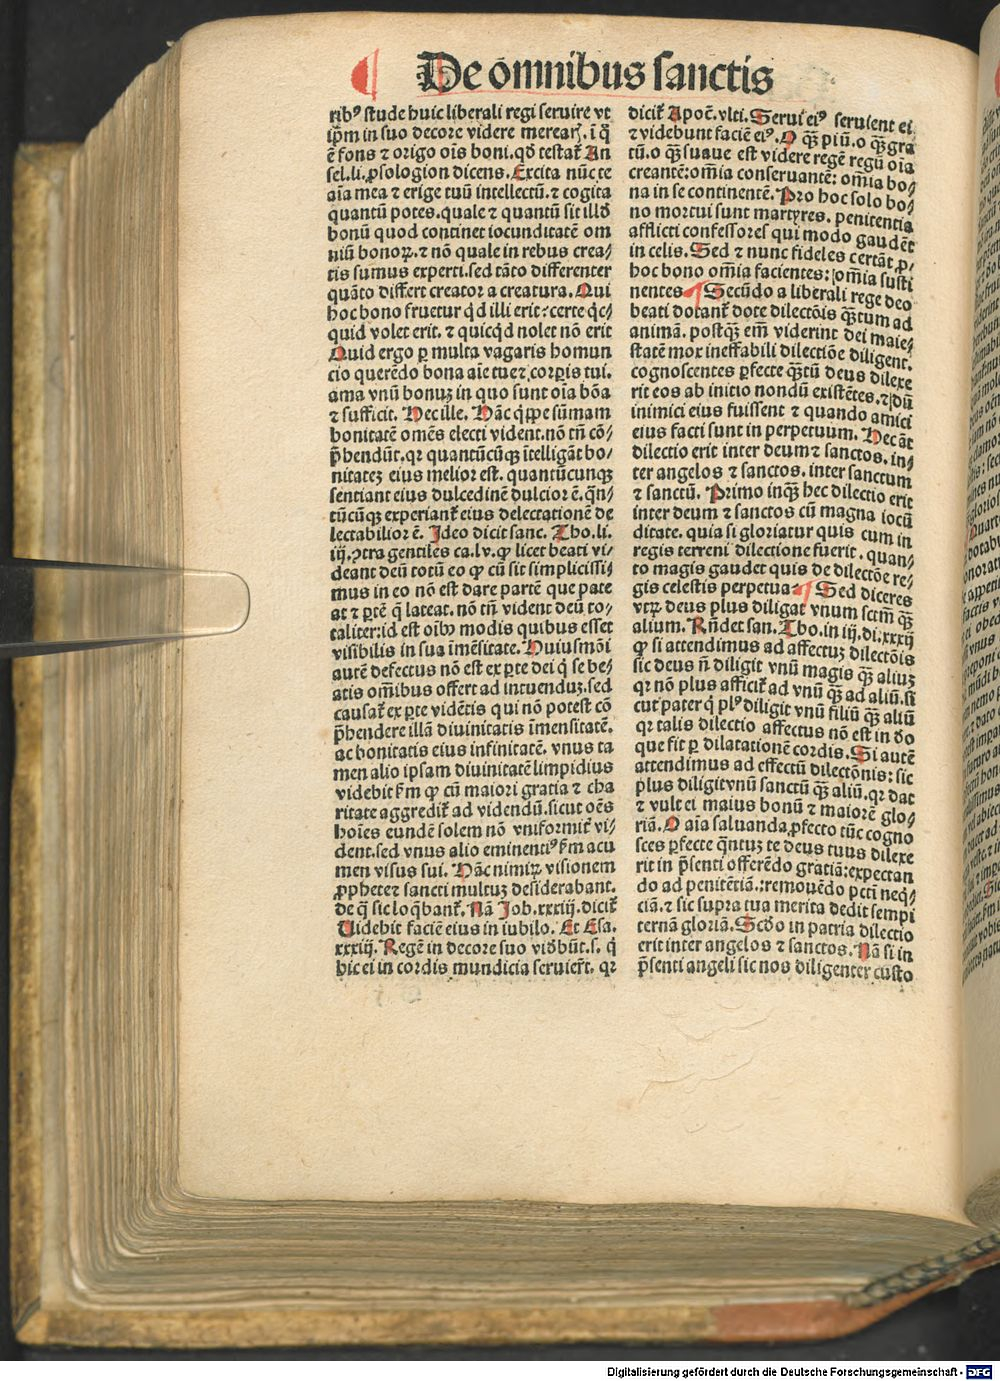 De om̄nibus sanctis
rib⁹ stude huic liberali regi seruire vt
ip̄m in suo decore videre merear̄. ī q̄
ē fons ⁊ origo oīs boni. qd̄ testat᷑ An
sel. li. ꝓsologion dicens. Excita nūc te
aīa mea ⁊ erige tuū intellectū. ⁊ cogita
quantū potes. quale ⁊ quantū sit illd̄
bonū quod continet iocunditatē om
niū bonoꝝ. ⁊ nō quale in rebus crea⸗
tis sumus experti. sed tāto differenter
quāto differt creator a creatura. Qui
hoc bono fruetur qd̄ illi erit? certe qc̄⸗
quid volet erit. ⁊ quicq̄d nolet nō erit
Quid ergo ꝑ multa vagaris homun
cio querēdo bona aīe tue ⁊ corꝑis tui.
ama vnū bonuꝫ in quo sunt oīa bōa
⁊ sufficit. Hec ille. Hāc q̄ppe sūmam
bonitatē omēs electi vident. nō tn̄ cō⸗
p̄hendūt. qꝛ quantūcūqꝫ ītelligāt bo⸗
nitateꝫ eius melior est. quantūcunqꝫ
sentiant eius dulcedinē dulcior ē. q̄n⸗
tūcūqꝫ experiant᷑ eius delectationē de
lectabilior ē. Ideo dicit sanc. Tho. li.
iij. ꝯtra gentiles ca. lv. ꝙ licet beati vi⸗
deant deū totū eo ꝙ cū sit simplicissi⸗
mus in eo nō est dare partē que pate
at ⁊ ꝑtē q̄ lateat. nō tn̄ vident deū to⸗
taliter: id est oībꝰ modis quibus esset
visibilis in sua īmēsitate. Huiusmōi
autē defectus nō est ex ꝑte dei q̄ se be⸗
atis om̄ibus offert ad intuenduꝫ. sed
causat᷑ ex ꝑte vidētis qui nō potest cō
p̄hendere illā diuinitatis īmensitatē.
ac bonitatis eius infinitatē. vnus ta
men alio ipsam diuinitatē limpidius
videbit ẜm ꝙ cū maiori gratia ⁊ cha
ritate aggredit᷑ ad videndū. sicut oēs
hoīes eundē solem nō vniformit᷑ vi⸗
dent. sed vnus alio eminenti⁹ ẜm acu
men visus sui. Hāc nimiꝝ visionem
ꝓpheteꝫ sancti multuꝫ desiderabant.
de q̄ sic loq̄bant᷑. Nā Job. xxxiij. dicit᷑
Uidebit faciē eius in iubilo. Et Esa.
xxxiij. Regē in decore suo vidb̄ūt. s. q̄
hic ei in cordis mundicia seruier̄t. qꝛ
dicit᷑ Apoc̄. vlti. Serui ei⁹ seruient ei
⁊ videbunt faciē ei⁹. O qꝫ̄ piū. o qꝫ̄ gra
tū. o qꝫ̄ suaue est videre regē regū oīa
creantē: om̄ia conseruantē: om̄ia bo⸗
na in se continentē. Pro hoc solo bo⸗
no mortui sunt martyres. penitentia
afflicti confessores qui modo gaudēt
in celis. Sed ⁊ nunc fideles certāt ꝓ⸗
hoc bono om̄ia facientes: om̄ia susti
nentes ¶ Secūdo a liberali rege deo
beati dotant᷑ dote dilectōis qꝫ̄tum ad
animā. postqꝫ̄ em̄ viderint dei maie⸗
statē mox ineffabili dilectiōe diligent.
cognoscentes ꝑfecte qꝫ̄tū deus dilexe
rit eos ab initio nondū existētes. ⁊ dū
inimici eius fuissent ⁊ quando amici
eius facti sunt in perpetuum. Hec āt
dilectio erit inter deum ⁊ sanctos. in⸗
ter angelos ⁊ sanctos. inter sanctum
⁊ sanctū. Primo inqꝫ̄ hec dilectio erit
inter deum ⁊ sanctos cū magna iocū
ditate. quia si gloriatur quis cum in
regis terreni dilectione fuerit. quan⸗
to magis gaudet quis de dilectōe re⸗
gis celestis perpetua ¶ Sed diceres
vtꝝ deus plus diligat vnum sctm̄ qꝫ̄
alium. Rn̄det san. Tho. in iij. di. xxxij
ꝙ si attendimus ad affectuꝫ dilectōis
sic deus n̄ diligit vnū magis qꝫ̄ aliuꝫ
qꝛ nō plus afficit᷑ ad vnū qꝫ̄ ad aliū. si
cut pater q̄ pl⁹ diligit vnū filiū qꝫ̄ aliū
qꝛ talis dilectio affectus nō est in do
que fit ꝑ dilatationē cordis. Si autē
attendimus ad effectū dilectōnis: sic
plus diligit vnū sanctū qꝫ̄ aliū. qꝛ dat
⁊ vult ei maius bonū ⁊ maiorē glo⸗
riā. O aīa saluanda ꝓfecto tūc cogno
sces ꝑfecte q̄ntuꝫ te deus tuus dilexe
rit in p̄senti offerēdo gratiā: expectan
do ad penitētiā: remouēdo pctī neq̄⸗
ciā. ⁊ sic supra tua merita dedit sempi
ternā gloriā. Scd̄o in patria dilectio
erit inter angelos ⁊ sanctos. Nā si in
p̄senti angeli sic nos diligenter custo
Digitalisierung gefördert durch die Deutsche Forschungsgemeinschaft - DFG